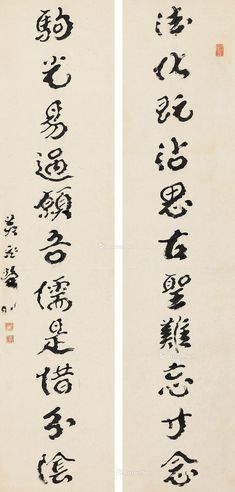 德化既沾思古聖難忘廿念
駒光易過願吾儒是惜分陰